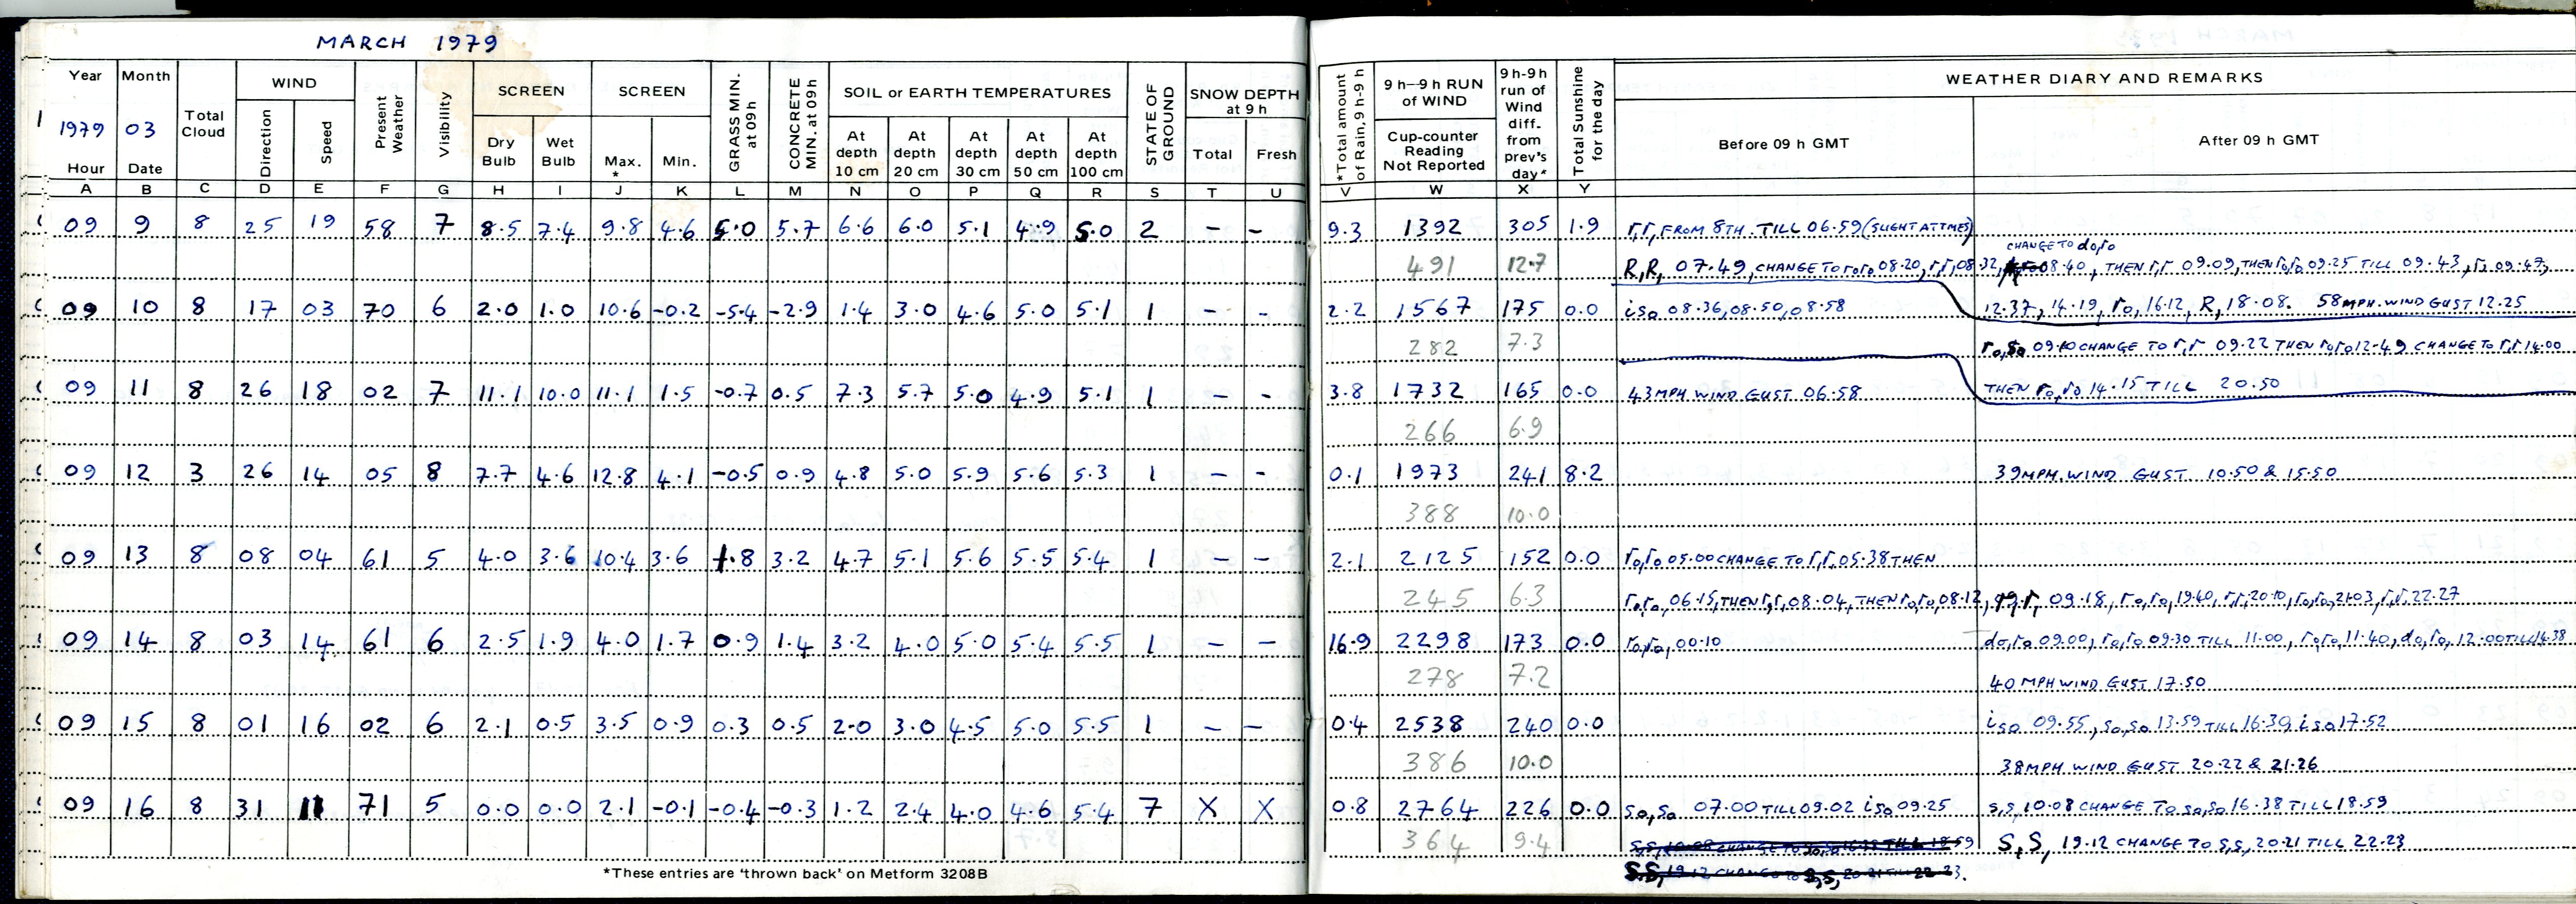 MARCH 1979
Year Month Total Cloud WIND Present Weather Visibility SCREEN SCREEN GRASS MIN. at 09h CONCRETE MIN. at 09h SOIL or EARTH TEMPERATURES STATE OF GROUND SNOW DEPTH at 9 h *Total amount of Rain, 9h-9h 9 h–9 h RUN of WIND 9h-9h run of Wind diff. from prev's day* Total Sunshine for the day WEATHER DIARY AND REMARKS
1979 03 Direction Speed Dry Bulb Wet Bulb Max. * Min. At depth 10 cm At depth 20 cm At depth 30 cm At depth 50 cm At depth 100 cm Total Fresh Cup-counter Reading Not Reported Before 09 h GMT After 09 h GMT
Hour Date
A B C D E F G H I J K L M N O P Q R S T U V W X Y
09 9 8 25 19 58 7 8.5 7.4 9.8 4.6 5.0 5.7 6.6 6.0 5.1 4.9 5.0 2 – – 9.3 1392 305 1.9 r,r, FROM 8TH. TILL 06.59 (SLIGHT AT TMES)
CHANGE TO do,ro
491 12.7 R,R, 07.49, CHANGE TO roro 08.20, r,r, 08.32, 08.40, THEN r,r 09.09, THEN roro 09.25 TILL 09.43, r, 09.47,
09 10 8 17 03 70 6 2.0 1.0 10.6 -0.2 -5.4 -2.9 1.4 3.0 4.6 5.0 5.1 1 – – 2.2 1567 175 0.0 iso 08.36, 08.50, 08.58 12.37, 14.19, ro, 16.12, R, 18.08. 58 MPH. WIND GUST 12.25
282 7.3 ro,so 09.10 CHANGE TO r,r 09.22 THEN roro 12.49 CHANGE TO r,r 14.00
09 11 8 26 18 02 7 11.1 10.0 11.1 1.5 -0.7 0.5 7.3 5.7 5.0 4.9 5.1 1 – – 3.8 1732 165 0.0 43 MPH WIND GUST 06.58 THEN ro,ro 14.15 TILL 20.50
266 6.9
09 12 3 26 14 05 8 7.7 4.6 12.8 4.1 -0.5 0.9 4.8 5.0 5.9 5.6 5.3 1 – – 0.1 1973 241 8.2 39 MPH. WIND GUST 10.50 & 15.50
388 10.0
09 13 8 08 04 61 5 4.0 3.6 10.4 3.6 1.8 3.2 4.7 5.1 5.6 5.5 5.4 1 – – 2.1 2125 152 0.0 ro,ro 05.00 CHANGE TO r,r, 05.38 THEN
245 6.3 ro,ro, 06.15, THEN r,r, 08.04, THEN ro,ro, 08.12, 09.18, ro,ro, 19.40, r,r, 20.10, ro,ro, 21.03, r,r, 22.27
09 14 8 03 14 61 6 2.5 1.9 4.0 1.7 0.9 1.4 3.2 4.0 5.0 5.4 5.5 1 – – 16.9 2298 173 0.0 ro,ro, 00.10 do,ro 09.00, ro,ro 09.30 TILL 11.00, roro, 11.40, do,ro, 12.00 TILL 14.38
278 7.2 40 MPH WIND GUST 17.50
09 15 8 01 16 02 6 2.1 0.5 3.5 0.9 0.3 0.5 2.0 3.0 4.5 5.0 5.5 1 – – 0.4 2538 240 0.0 iso 09.55, so,so 13.59 TILL 16.30 iso 17.52
386 10.0 38 MPH WIND GUST 20.22 & 21.26
09 16 8 31 11 71 5 0.0 0.0 2.1 -0.1 -0.4 -0.3 1.2 2.4 4.0 4.6 5.4 7 X X 0.8 2764 226 0.0 so,so 07.00 TILL 09.02 iso 09.25 s,s, 10.08 CHANGE TO so,so 16.38 TILL 18.59
364 9.4 S,S, 19.12 CHANGE TO s,s, 20.21 TILL 22.23
*These entries are 'thrown back' on Metform 3208B